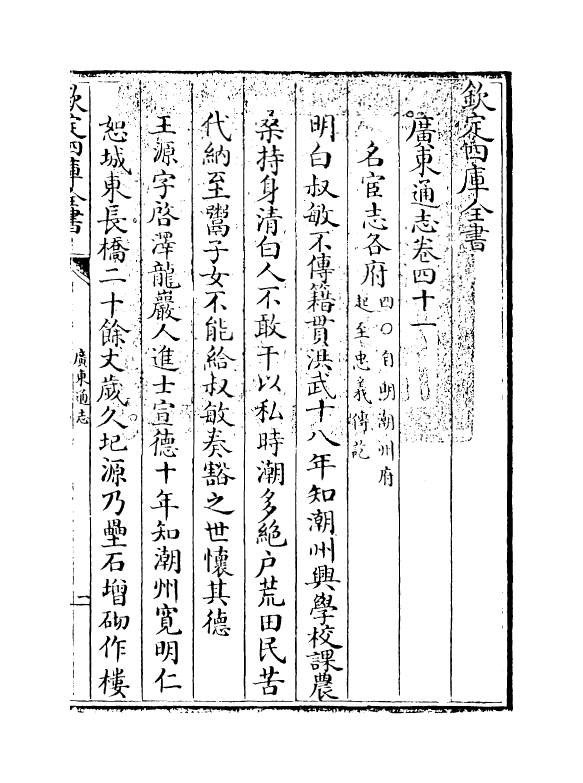 欽定四庫全書
廣東通志卷四十一
名宦志各府四〇自明潮州府
起至忠義傳訖
明白叔敏不傳籍貫洪武十八年知潮州興學校課農
桑持身清白人不敢干以私時潮多絶户荒田民苦
代納至鬻子女不能給叔敏奏豁之世懷其德
王源字啓澤龍巖人進士宣德十年知潮州寛明仁
恕城東長橋二十餘丈歲久圮源乃壘石增砌作樓
欽定四庫全書
廣東通志
一